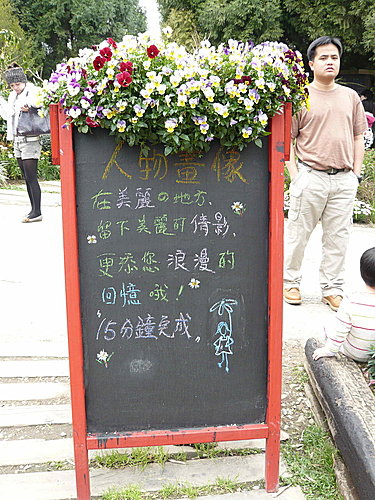 人物畫像
在美麗の地方、
留下美麗的倩影,
更添您浪漫的
回憶哦!
"15分鐘完成"